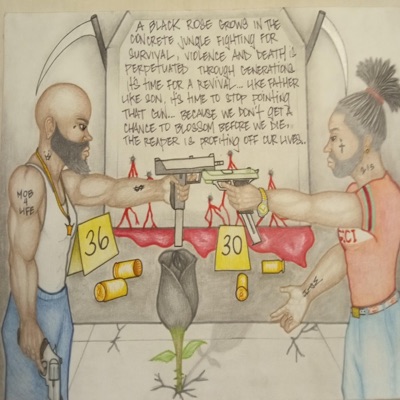 A BLACK ROSE GROWS IN THE
CONCRETE JUNGLE FIGHTING FOR
SURVIVAL, VIOLENCE AND DEATH IS
PERPETUATED THROUGH GENERATIONS.
IT'S TIME FOR A REVIVAL... LIKE FATHER
LIKE SON, IT'S TIME TO STOP POINTING
THAT GUN... BECAUSE WE DON'T GET A
CHANCE TO BLOSSOM BEFORE WE DIE,..
THE REAPER IS PROFITING OFF OUR LIVES..
MOB
4
LIFE
36
30